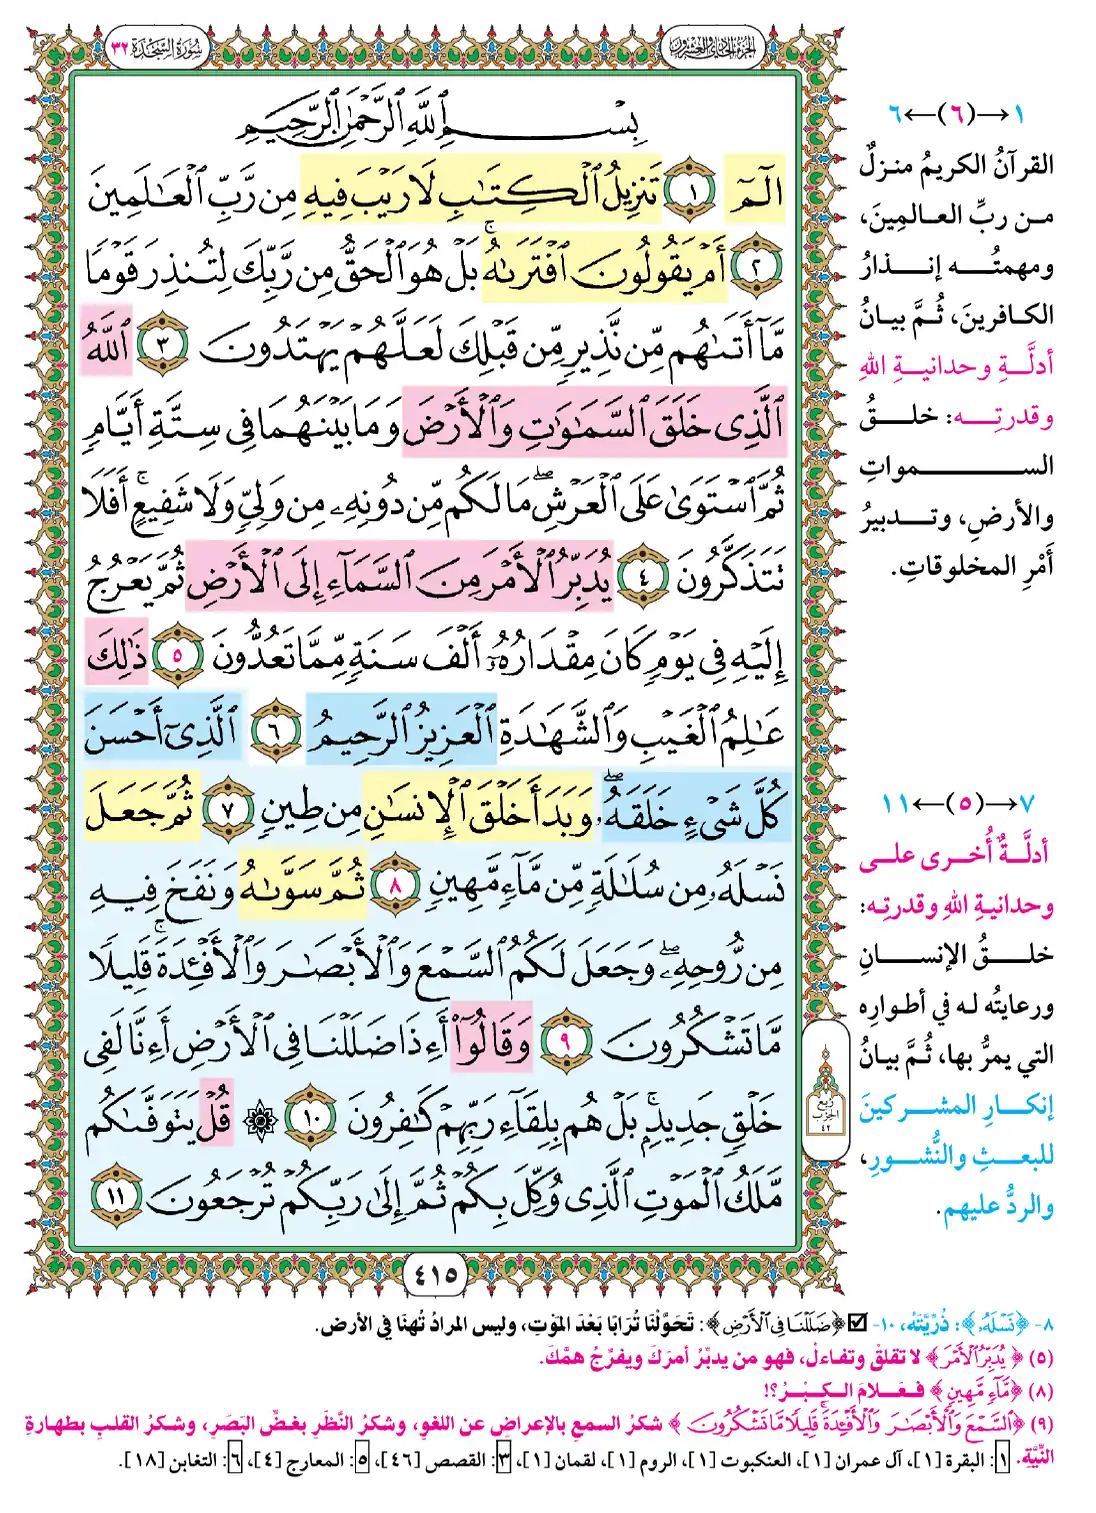 الجزء الحادي والعشرون
سورة السجدة ٣٢
بِسْمِ ٱللَّهِ ٱلرَّحْمَٰنِ ٱلرَّحِيمِ
الٓمٓ ١ تَنزِيلُ ٱلْكِتَٰبِ لَا رَيْبَ فِيهِ مِن رَّبِّ ٱلْعَٰلَمِينَ
٢ أَمْ يَقُولُونَ ٱفْتَرَىٰهُ ۚ بَلْ هُوَ ٱلْحَقُّ مِن رَّبِّكَ لِتُنذِرَ قَوْمًا
مَّآ أَتَىٰهُم مِّن نَّذِيرٍ مِّن قَبْلِكَ لَعَلَّهُمْ يَهْتَدُونَ ٣ ٱللَّهُ
ٱلَّذِى خَلَقَ ٱلسَّمَٰوَٰتِ وَٱلْأَرْضَ وَمَا بَيْنَهُمَا فِى سِتَّةِ أَيَّامٍ
ثُمَّ ٱسْتَوَىٰ عَلَى ٱلْعَرْشِ ۖ مَا لَكُم مِّن دُونِهِۦ مِن وَلِىٍّ وَلَا شَفِيعٍ ۚ أَفَلَا
تَتَذَكَّرُونَ ٤ يُدَبِّرُ ٱلْأَمْرَ مِنَ ٱلسَّمَآءِ إِلَى ٱلْأَرْضِ ثُمَّ يَعْرُجُ
إِلَيْهِ فِى يَوْمٍ كَانَ مِقْدَارُهُۥٓ أَلْفَ سَنَةٍ مِّمَّا تَعُدُّونَ ٥ ذَٰلِكَ
عَٰلِمُ ٱلْغَيْبِ وَٱلشَّهَٰدَةِ ٱلْعَزِيزُ ٱلرَّحِيمُ ٦ ٱلَّذِىٓ أَحْسَنَ
كُلَّ شَىْءٍ خَلَقَهُۥ ۖ وَبَدَأَ خَلْقَ ٱلْإِنسَٰنِ مِن طِينٍ ٧ ثُمَّ جَعَلَ
نَسْلَهُۥ مِن سُلَٰلَةٍ مِّن مَّآءٍ مَّهِينٍ ٨ ثُمَّ سَوَّىٰهُ وَنَفَخَ فِيهِ
مِن رُّوحِهِۦ ۖ وَجَعَلَ لَكُمُ ٱلسَّمْعَ وَٱلْأَبْصَٰرَ وَٱلْأَفْـِٔدَةَ ۚ قَلِيلًا
مَّا تَشْكُرُونَ ٩ وَقَالُوٓا۟ أَءِذَا ضَلَلْنَا فِى ٱلْأَرْضِ أَءِنَّا لَفِى
خَلْقٍ جَدِيدٍۭ ۚ بَلْ هُم بِلِقَآءِ رَبِّهِمْ كَٰفِرُونَ ١٠ ۞ قُلْ يَتَوَفَّىٰكُم
مَّلَكُ ٱلْمَوْتِ ٱلَّذِى وُكِّلَ بِكُمْ ثُمَّ إِلَىٰ رَبِّكُمْ تُرْجَعُونَ ١١
٤١٥
ربع
الحزب
٤٢
١→(٦)←٦
القرآنُ الكريمُ منزلٌ
من ربِّ العالمِينَ،
ومهمتُه إنذارُ
الكافرينَ، ثُمَّ بيانُ
أدلَّةِ وحدانيةِ اللهِ
وقدرتِه: خلقُ
السمواتِ
والأرضِ، وتدبيرُ
أمْرِ المخلوقاتِ.
٧→(٥)←١١
أدلَّةٌ أُخرى على
وحدانيةِ اللهِ وقدرتِه:
خلقُ الإنسانِ
ورعايتُه له في أطوارِه
التي يمرُّ بها، ثُمَّ بيانُ
إنكارِ المشركينَ
للبعثِ والنُّشورِ،
والردُّ عليهم.
٨- ﴿نَسْلَهُۥ﴾: ذُرِّيَّتَهُ، ١٠- ☑ ﴿ضَلَلْنَا فِى ٱلْأَرْضِ﴾: تَحَوَّلْنَا تُرَابًا بَعْدَ المَوْتِ، وليس المرادُ تُهنَا في الأرض.
(٥) ﴿يُدَبِّرُ ٱلْأَمْرَ﴾ لا تقلقْ وتفاءلْ، فهو من يدبِّرُ أمرَكَ ويفرِّجُ همَّكَ.
(٨) ﴿مَّآءٍ مَّهِينٍ﴾ فعَلامَ الكِبْرُ؟!
(٩) ﴿ٱلسَّمْعَ وَٱلْأَبْصَٰرَ وَٱلْأَفْـِٔدَةَ ۚ قَلِيلًا مَّا تَشْكُرُونَ﴾ شكرُ السمعِ بالإعراضِ عن اللغوِ، وشكرُ النَّظَرِ بغضِّ البَصَرِ، وشكرُ القلبِ بطهارةِ
النِّيَّةِ. ١: البقرة [١]، آل عمران [١]، العنكبوت [١]، الروم [١]، لقمان [١]، ٣: القصص [٤٦]، ٥: المعارج [٤]، ٦: التغابن [١٨].